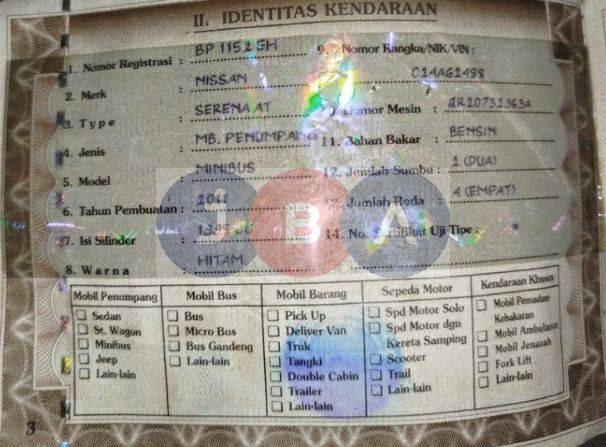 II. IDENTITAS KENDARAAN
1. Nomor Registrasi : BP 1152 EH
2. Merk : NISSAN
3. Type : SERENA AT
4. Jenis : MB. PENUMPANG
5. Model : MINIBUS
6. Tahun Pembuatan : 2011
7. Isi Silinder :
8. Warna : HITAM
9. Nomor Rangka/NIK/VIN :
C24A62488
Nomor Mesin :
11. Bahan Bakar : BENSIN
12. Jumlah Sumbu : (DUA)
Jumlah Roda : 4 (EMPAT)
14. No. Uji Tipe :
JBA
Mobil Penumpang
Sedan
St. Wagon
Minibus
Jeep
Lain-lain
Mobil Bus
Bus
Micro Bus
Bus Gandeng
Lain-lain
Mobil Barang
Pick Up
Deliver Van
Truk
Tangki
Double Cabin
Trailer
Lain-lain
Sepeda Motor
Spd Motor Solo
Spd Motor dgn
Kereta Samping
Scooter
Trail
Lain-lain
Kendaraan Khusus
Mobil Pemadan
Kebakaran
Mobil Ambulanc
Mobil Jenazah
Fork Lift
Lain-lain
3